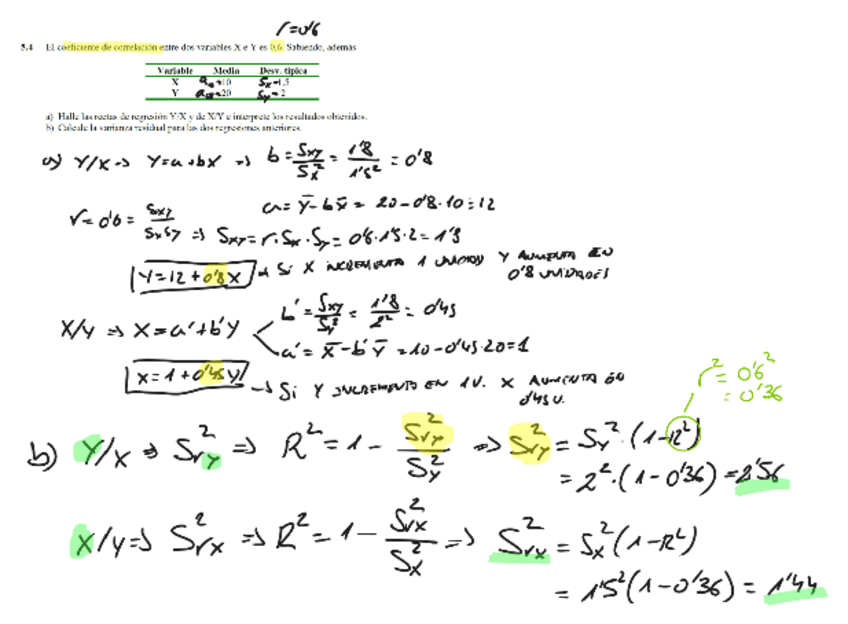 r=0'6
5.4 El coeficiente de correlación entre dos variables X e Y es 0,6. Sabiendo, además
Variable Media Desv. típica
X 10 Sx=1,5
Y 20 Sy=2
a) Halle las rectas de regresión Y/X y de X/Y e interprete los resultados obtenidos.
b) Calcule la varianza residual para las dos regresiones anteriores.
a) Y/X → Y=a+bX ⇒ b = Sxy/Sx² = 1'8/1'5² = 0'8
a = Ȳ - bX̄ = 20-0'8·10 = 12
r=0'6 = Sxy/SxSy ⇒ Sxy = r·Sx·Sy = 0'6·1'5·2 = 1'8
Y=12+0'8X → Si X INCREMENTA 1 UNIDAD Y AUMENTA EN
0'8 UNIDADES
X/Y ⇒ X=a'+b'Y
b' = Sxy/Sy² = 1'8/2² = 0'45
a' = X̄ - b'Ȳ = 10-0'45·20=1
X=1+0'45Y → Si Y INCREMENTO EN 1U. X AUMENTA EN
0'45U.
r² = 0'6²
= 0'36
b) Y/X ⇒ Sry² ⇒ R² = 1 - Sry²/Sy² ⇒ Sry² = Sy²·(1-R²)
= 2²·(1-0'36) = 2'56
X/Y ⇒ Srx² ⇒ R² = 1 - Srx²/Sx² ⇒ Srx² = Sx²(1-R²)
= 1'5²(1-0'36) = 1'44